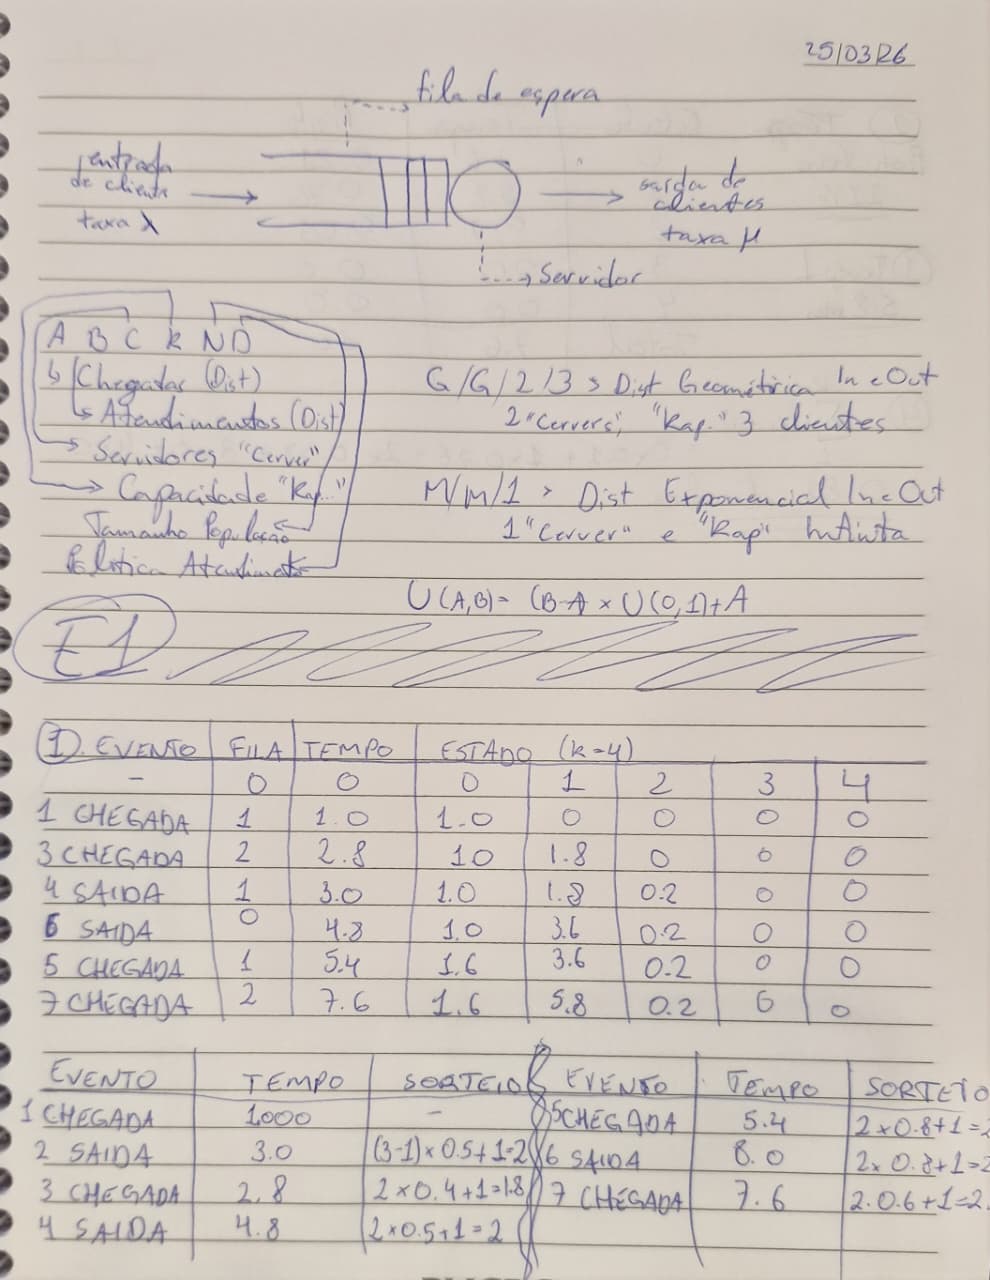 25/03/26
fila de espera
entrada
de cliente
taxa λ
saída de
clientes
taxa μ
Servidor
A B C K N D
Chegadas (Dist)
Atendimentos (Dist)
Servidores "Cerver"
Capacidade "Kap..."
Tamanho População
Política Atendimento
G/G/2/3 > Dist Geométirica In e Out
2 "Cervers", "Kap." 3 clientes
M/M/1 > Dist Exponencial In e Out
1 "Cerver" e "Kap" Infinita
U(A,B) = (B-A × U(0,1)+A
E1
1). EVENTO FILA TEMPO ESTADO (K=4)
- 0 0 0 1 2 3 4
1 CHEGADA 1 1.0 1.0 0 0 0 0
3 CHEGADA 2 2.8 1.0 1.8 0 0 0
4 SAIDA 1 3.0 1.0 1.8 0.2 0 0
6 SAIDA 0 4.8 1.0 3.6 0.2 0 0
5 CHEGADA 1 5.4 1.6 3.6 0.2 0 0
7 CHEGADA 2 7.6 1.6 5.8 0.2 0 0
EVENTO TEMPO SORTEIO EVENTO TEMPO SORTEIO
1 CHEGADA 1.000 - 5 CHEGADA 5.4 2×0.8+1=2
2 SAIDA 3.0 (3-1)×0.5+1=2 6 SAIDA 8.0 2×0.8+1=2
3 CHEGADA 2.8 2×0.4+1=1.8 7 CHEGADA 7.6 2.0.6+1=2.
4 SAIDA 4.8 2×0.5+1=2